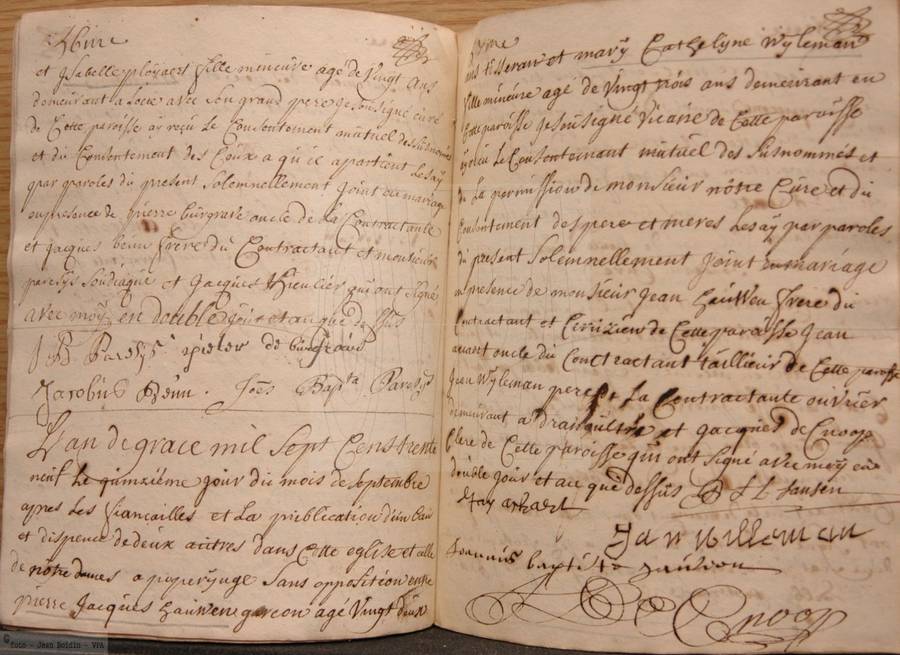 et Isabelle ployaert fille mineure agé de Vingt ans
demeurant la avec son grand pere Je soussigné curé
de Cette paroisse ay reçu le Consentement mutuel de susnommés
et du Consentement des Ceux a qu'il apartient les ay
par paroles du present Solemnellement Joint en mariage
en presence de pierre burgrave oncle de la Contractante
et jacques beun frere du Contractant et monsieur
paresys Soudiaque et Jacques qui ont signé
avec moy en double jour et an que dessus
J B Paresys pieter de burgrave
Jacobus Beun. Joēs Bapta Paresys
L'an de grace mil Sept Cens trente
neuf Le quinzième jour du mois de septembre
apres les fiancailles et La publication d'un ban
et dispence de deux autres dans Cette eglise et celle
de nôtre dames a poperynge sans opposition entre
pierre Jacques hauwen garcon agé Vingt deux
ans tisseran et mary Cathelyne Wyleman
fille mineure agé de Vingt trois ans demeurant en
Cette paroisse Je sousigné Vicaire de Cette paroisse
ay le Consentemant mutuel des susnommés et
de La permission de monsieur nôtre Cure et du
Consentement des pere et meres les ay par paroles
du present Solemnellement Joint en mariage
en presence de monsieur Jean hauwen frere du
Contractant et de Cette paroisse Jean
oncle du Contractant taillieur de Cette paroisse
Jean Wyleman pere de La Contractante ouvrier
demeurant a et Jacques de Cnoop
Clerc de Cette paroisse qui ont signé avec moy en
double jour et an que dessus Jansen
Jan willeman
Joannis baptista
De Cnoop
foto - Jean Boldin - VPA